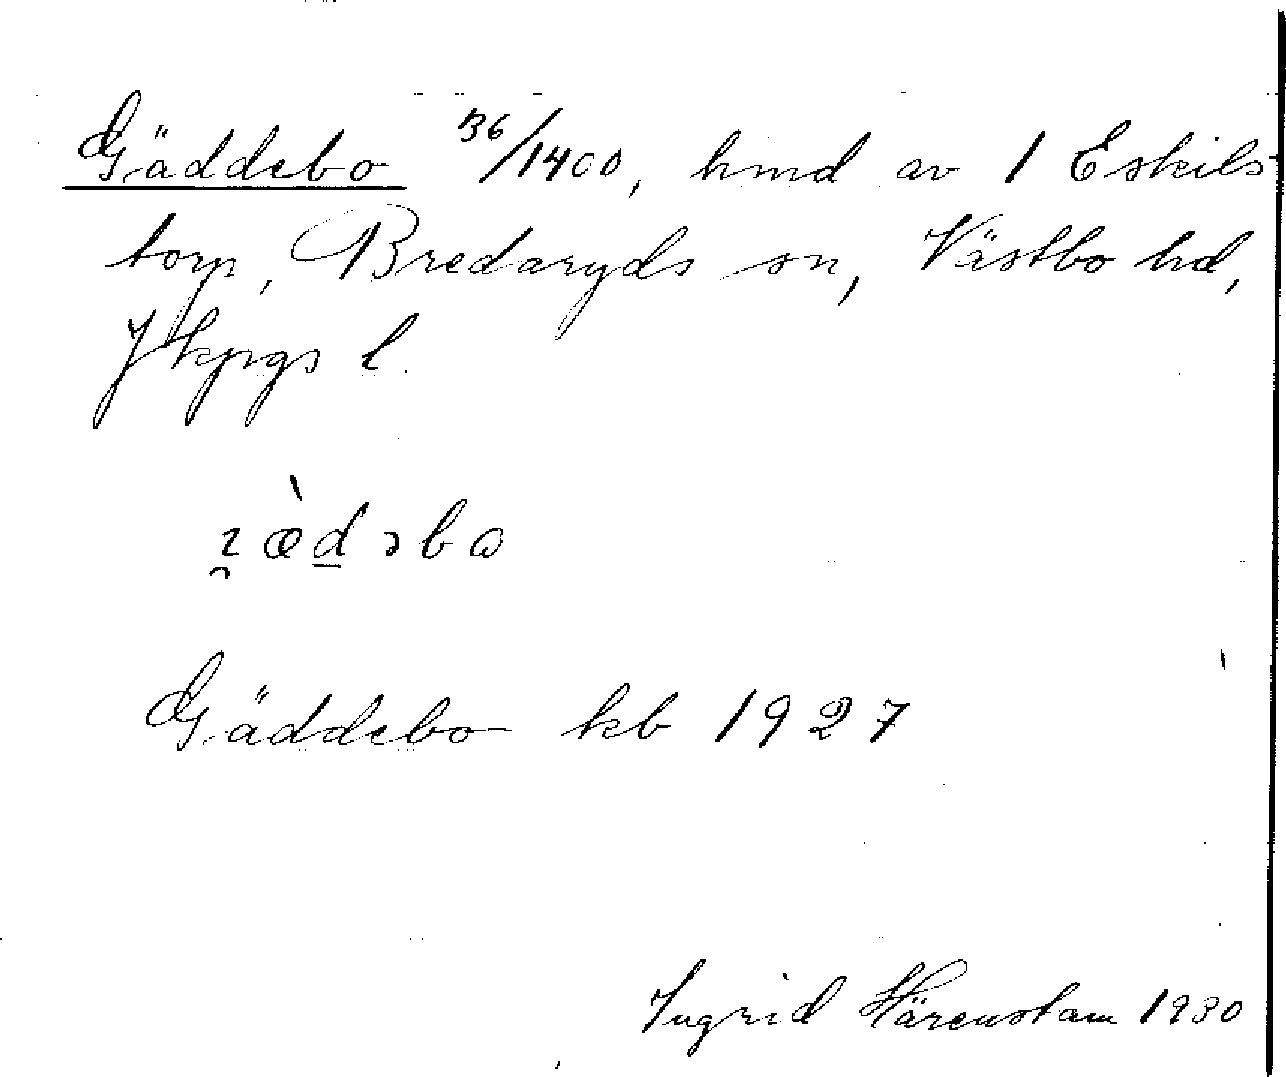 Gäddebo 36/1400, hmd av 1 Eskils-
torp, Bredaryds sn, Västbo hd,
Jkpgs l.
Gäddebo kb 1927
Ingrid Härenstam 1930